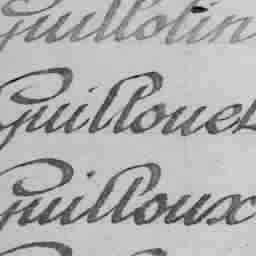 Guillotin
Guillouet
Guilloux